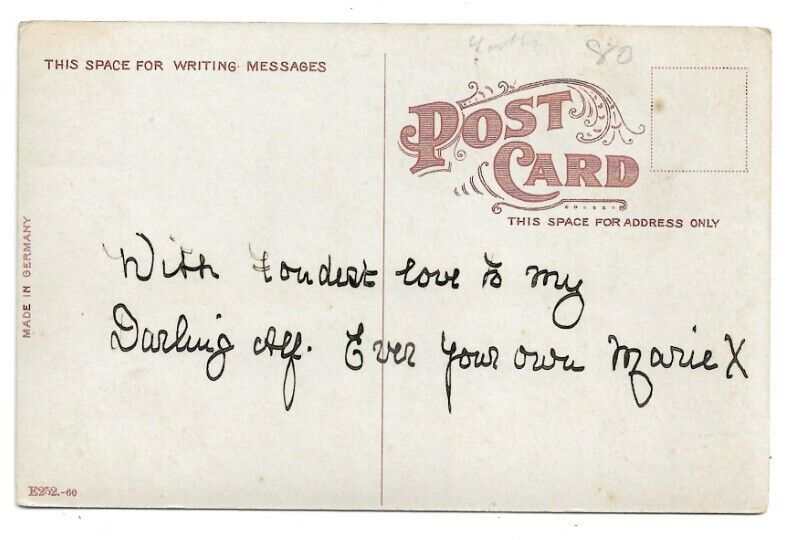 80
THIS SPACE FOR WRITING MESSAGES
POST CARD
THIS SPACE FOR ADDRESS ONLY
MADE IN GERMANY
With fondest love to my
Darling Alf. Ever your own Marie X
E252.-60